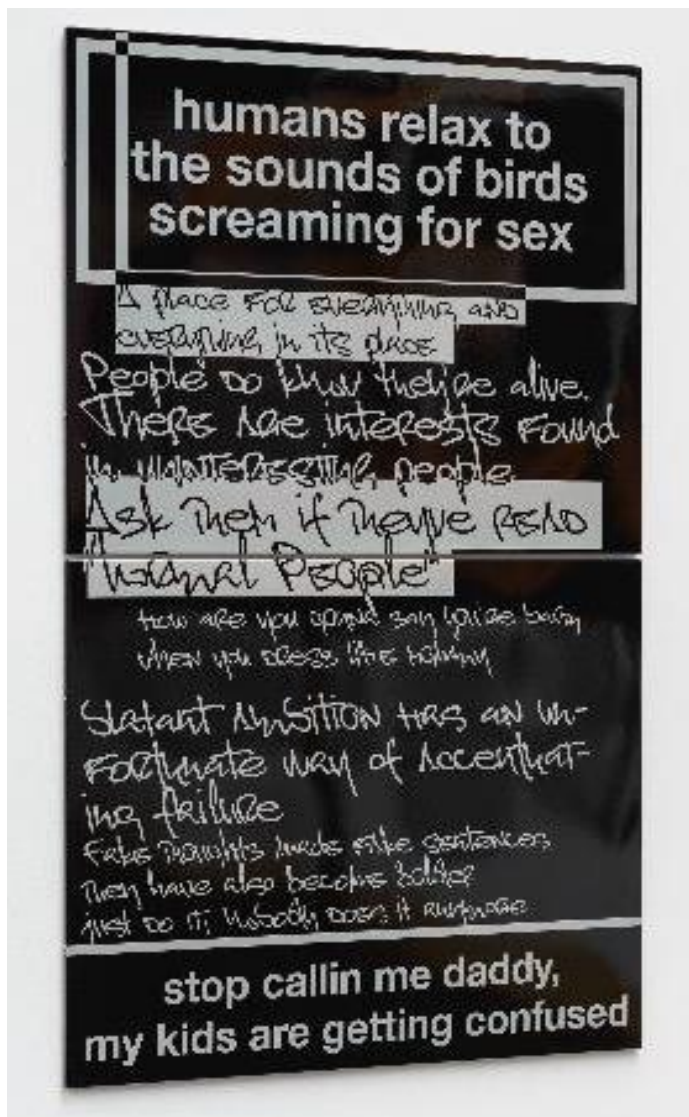 humans relax to
the sounds of birds
screaming for sex
A place for everything and
everything in its place
People do know they're alive.
There are interests found
in uninteresting people
Ask them if they've read
"Normal People"
How are you gonna say you're busy
when you dress like
Blatant ambition has an un-
fortunate way of accentuat-
ing failure
Fake thoughts made fake sentences
They have also become bolder
just do it; nobody does it anymore
stop callin me daddy,
my kids are getting confused